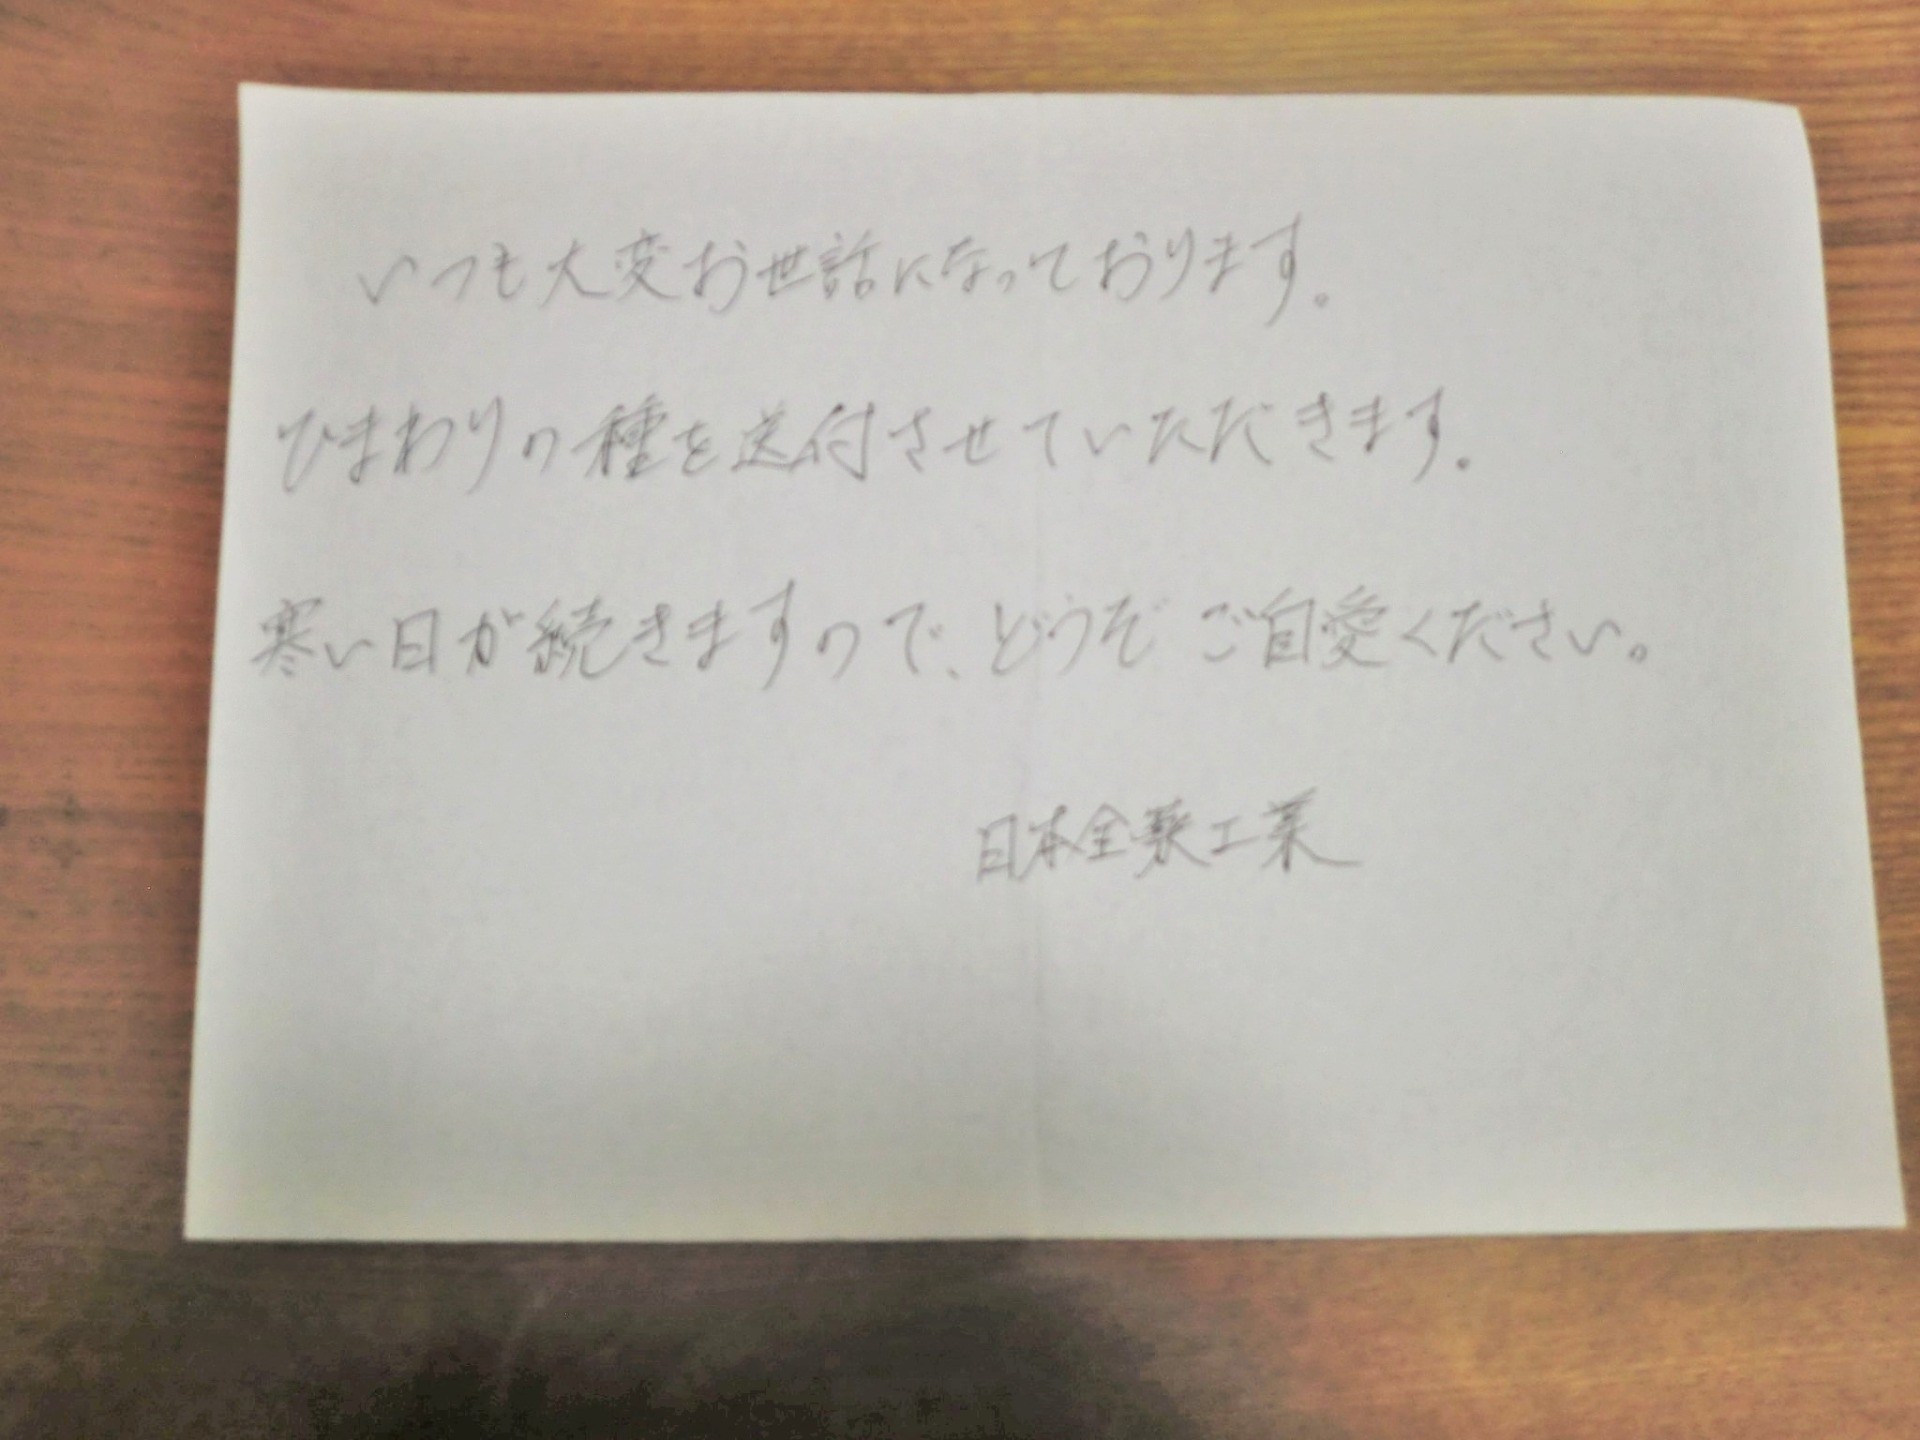 いつも大変お世話になっております。
ひまわりの種を送付させていただきます。
寒い日が続きますので、どうぞご自愛ください。
日本全薬工業